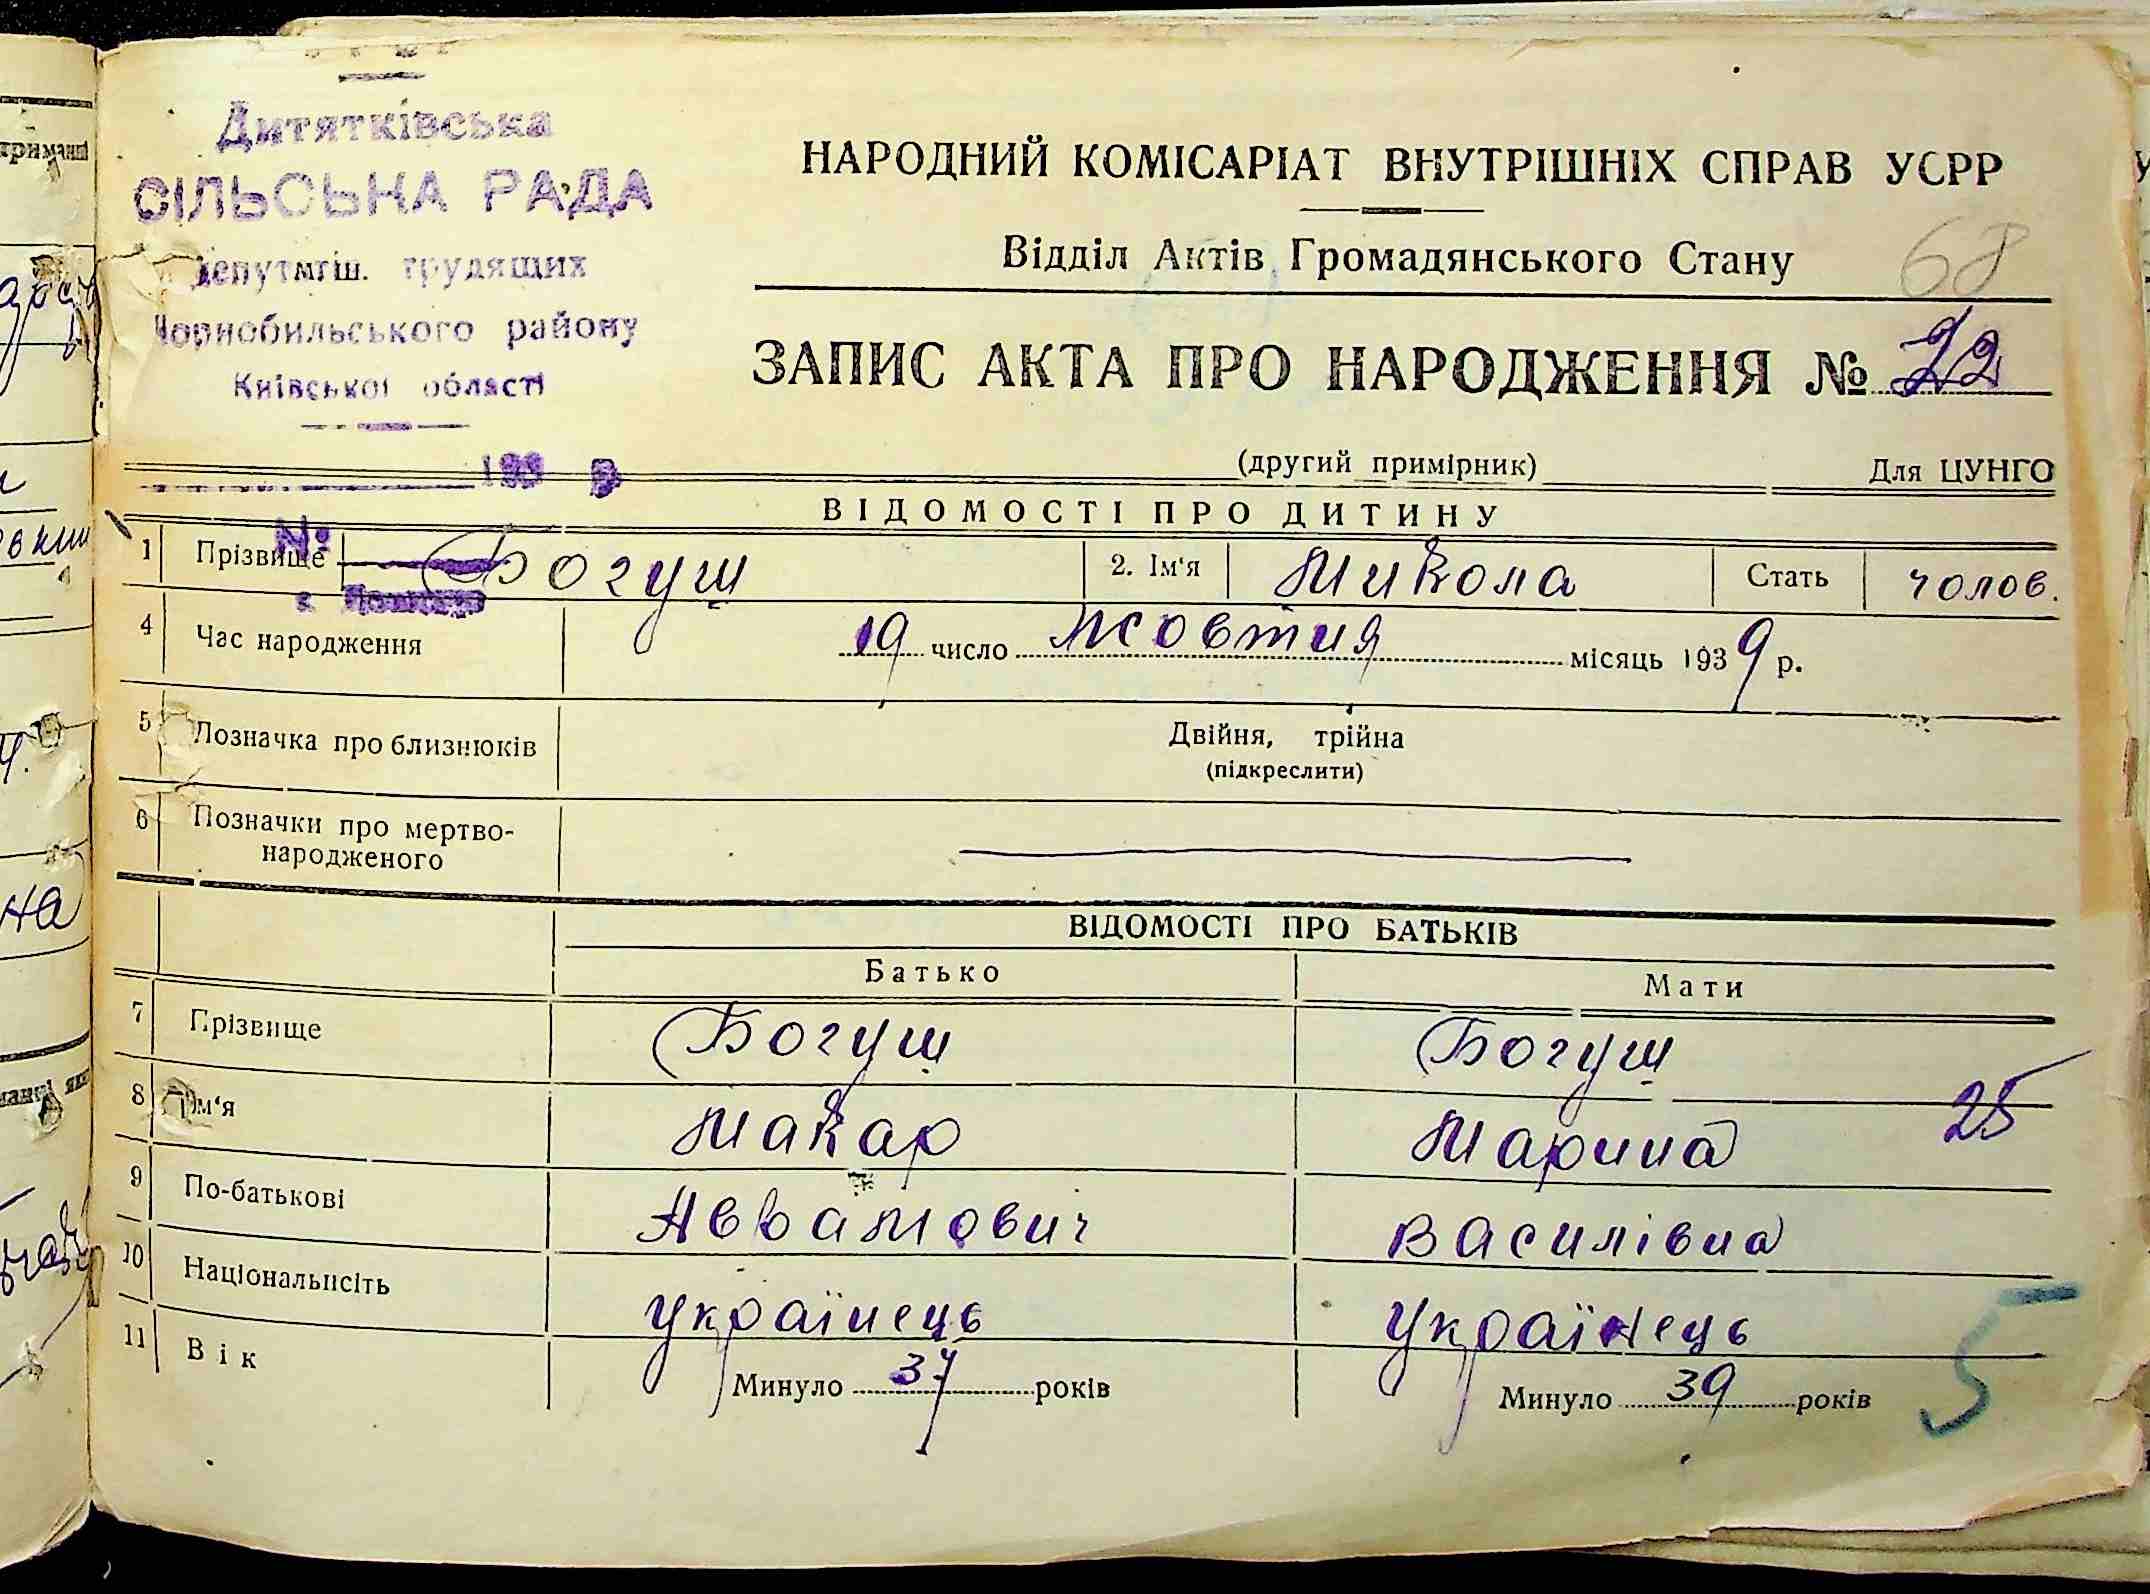 Дитятківська
СІЛЬСЬКА РАДА
депутатів трудящих
Чорнобильського району
Київської області
193 р
№
НАРОДНИЙ КОМІСАРІАТ ВНУТРІШНІХ СПРАВ УСРР
Відділ Актів Громадянського Стану
68
ЗАПИС АКТА ПРО НАРОДЖЕННЯ № 22
(другий примірник) Для ЦУНГО
ВІДОМОСТІ ПРО ДИТИНУ
1 Прізвище Богуш 2. Ім'я Микола Стать чолов.
4 Час народження 19 число жовтня місяць 1939 р.
5 Позначка про близнюків Двійня, трійна
(підкреслити)
6 Позначки про мертво-
народженого
ВІДОМОСТІ ПРО БАТЬКІВ
Батько Мати
7 Прізвище Богуш Богуш
8 Ім'я Макар Марина 25
9 По-батькові Аврамович Василівна
10 Національність українець українець
11 Вік Минуло 37 років Минуло 39 років
5